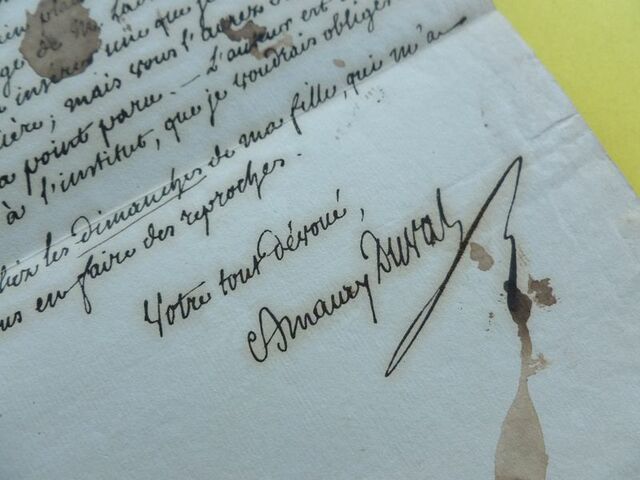 ge de M.
inséré une que je
ière; mais vous l'aurez
a point paru. — L'auteur est
à l'institut, que je voudrais obliger
les dimanches de ma fille, qui m'a
us en faire des reproches.
Votre tout dévoué,
Amaury Duval